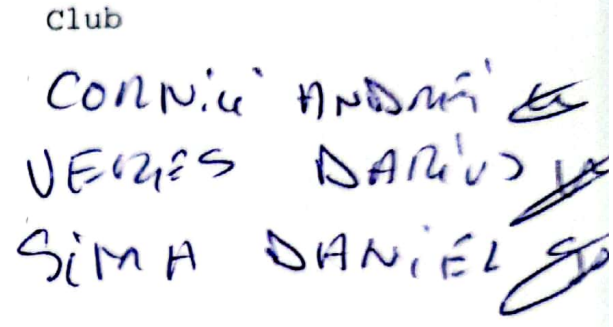 Club
ANDREI
VERES DARIUS
SIMA DANIEL